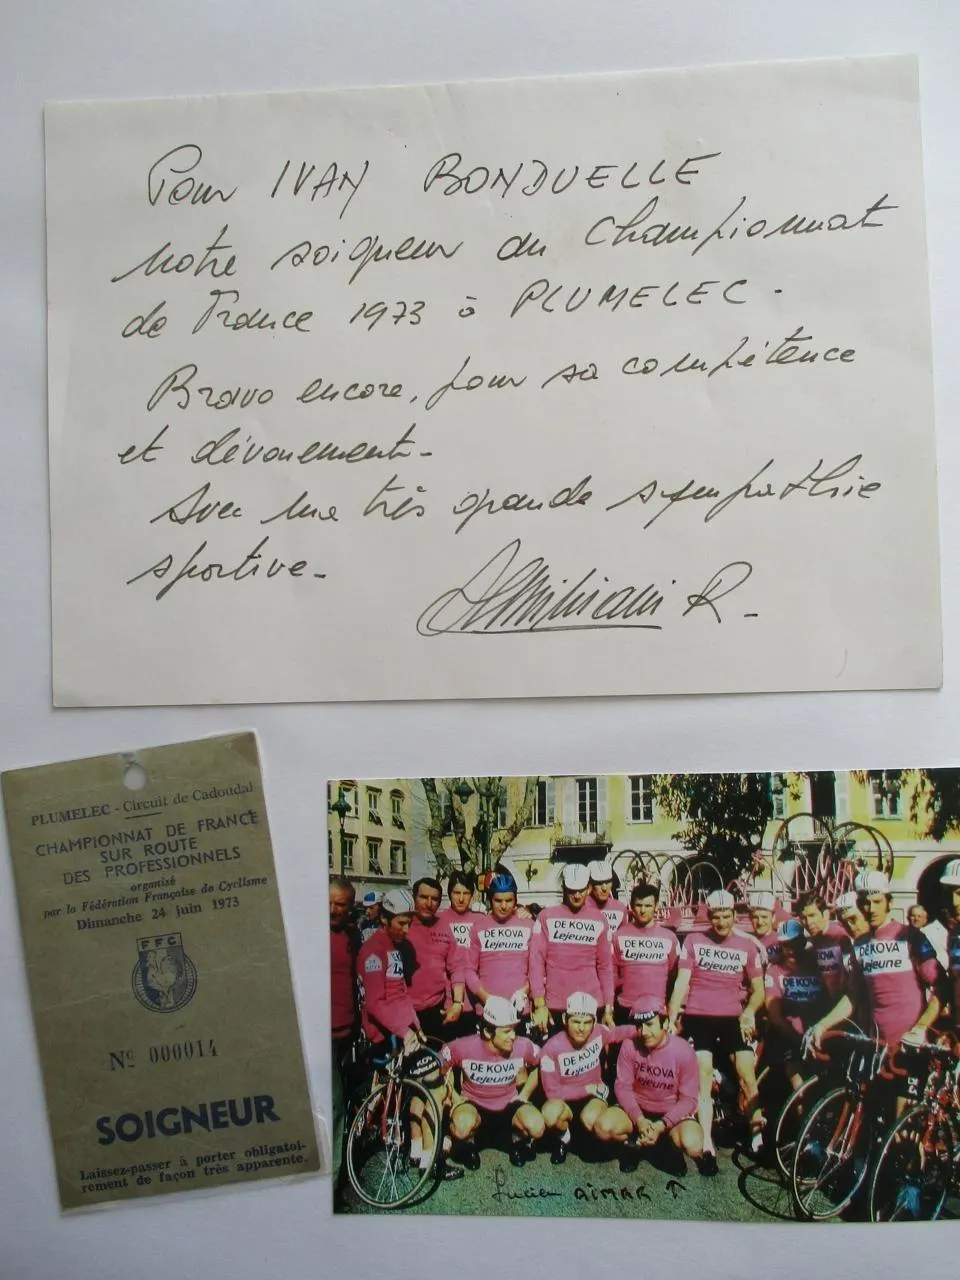 Pour IVAN BONDUELLE
notre soigneur du Championnat
de France 1973 à PLUMELEC.
Bravo encore, pour sa compétence
et dévouement.
Avec ma très grande sympathie
sportive.
R.
PLUMELEC - Circuit de Cadoudal
CHAMPIONNAT DE FRANCE
SUR ROUTE
DES PROFESSIONNELS
organisé
par la Fédération Française de Cyclisme
Dimanche 24 juin 1973
FFC
Nº 000014
SOIGNEUR
Laissez-passer à porter obligatoi-
rement de façon très apparente.
DE KOVA
Lejeune
DE KOVA
Lejeune
DE KOVA
Lejeune
DE KOVA
Lejeune
DE KOVA
Lejeune
DE KOVA
Lejeune
DE KOVA
Lejeune
DE KOVA
Lejeune
Lucien AIMAR ↑